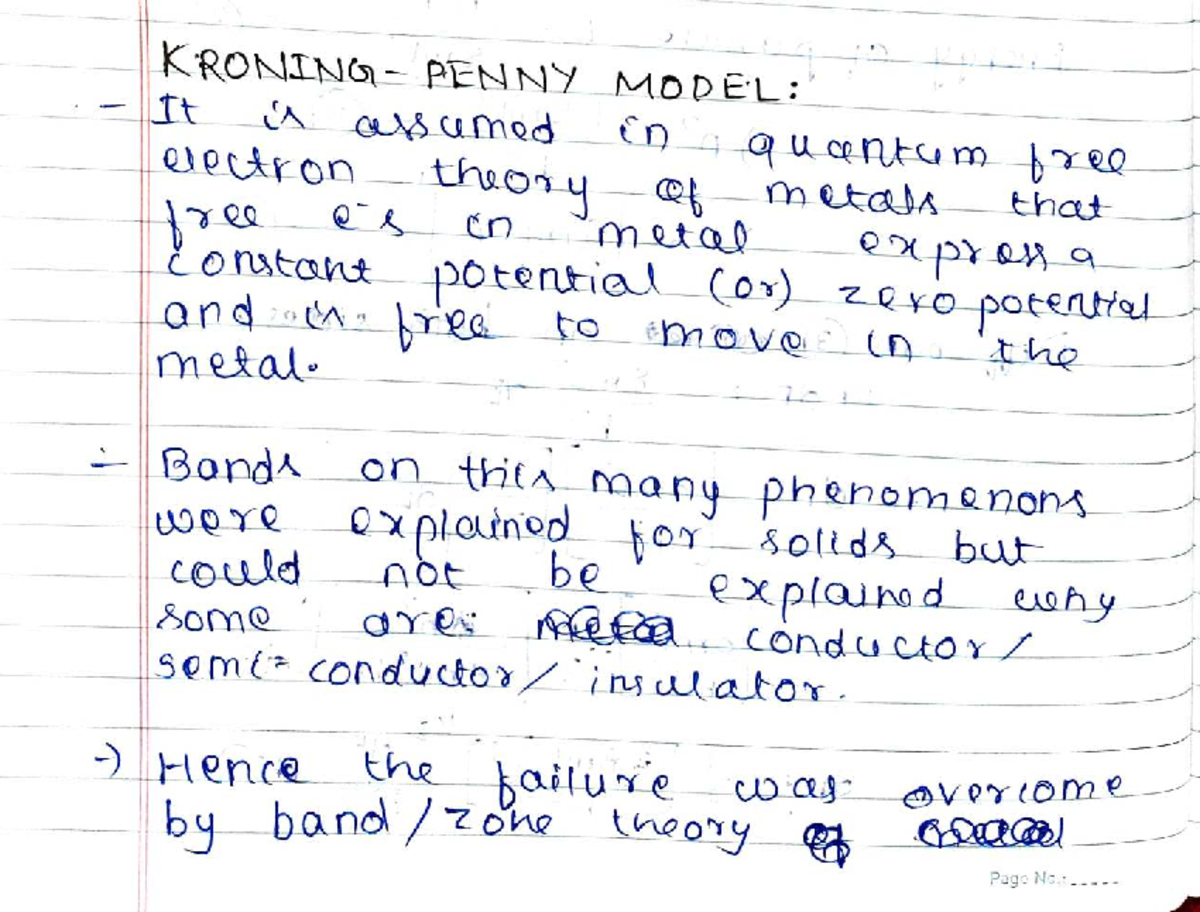 KRONING - PENNY MODEL:
- It is assumed in quantum free
electron theory of metals that
free e⁻s in metal express a
constant potential (or) zero potential
and is free to move in the
metal.
- Bands on this many phenomenons
were explained for solids but
could not be explained why
some are conductor/
semi-conductor/ insulator.
-) Hence the failure was overcome
by band/zone theory
Page No.: